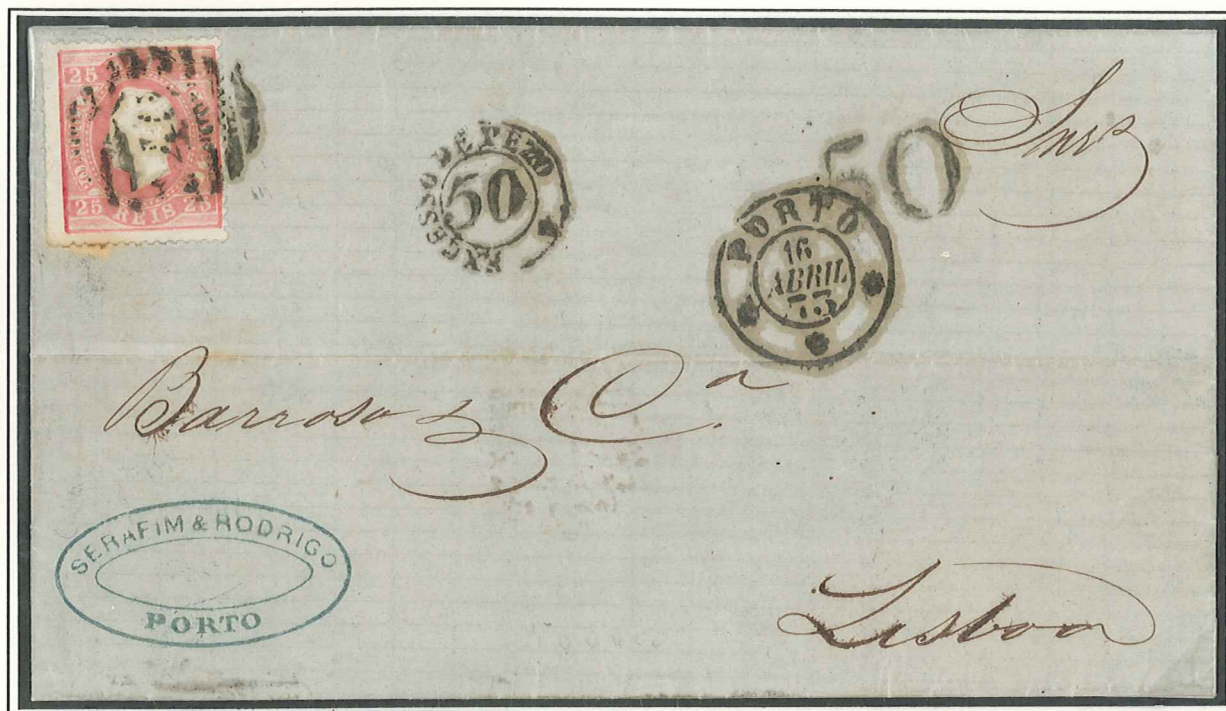 25
25 REIS 25
EXCESSO DE PEZO
50
50
Snrs
PORTO
16
ABRIL
73
Barroso & C.a
SERAFIM & RODRIGO
PORTO
Lisboa